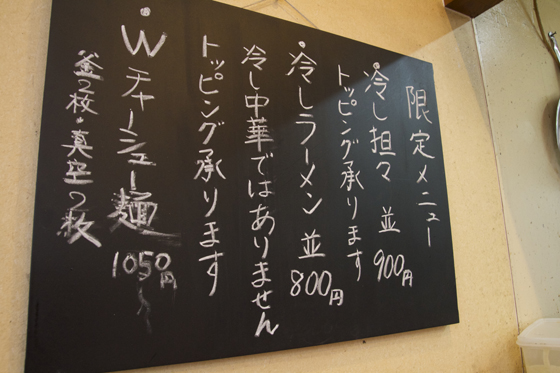 限定メニュー
・冷し担々 並 900円
トッピング承ります
・冷しラーメン 並 800円
冷し中華ではありません
トッピング承ります
・Wチャーシュー麺 1050円
釜2枚・真空2枚